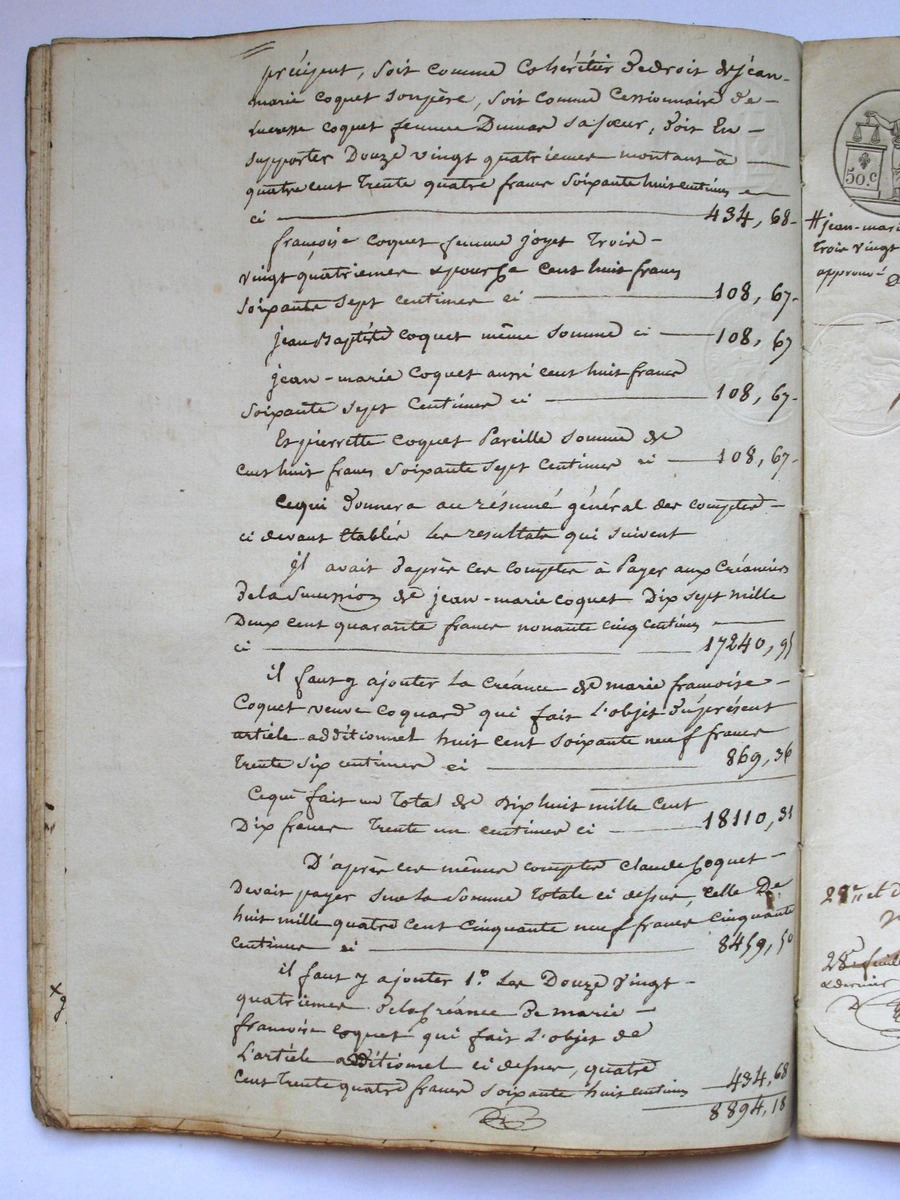 préciput, soit comme Cohéritier de droit de jean-
marie Coquet son père, soit comme Cessionnaire de -
Lucresse Coquet femme Dumas sa sœur, doit En -
supporter Douze vingt quatriemes montant à
quatre cent trente quatre francs soixante huit centimes
ci 434, 68-
françoise Coquet femme joyet Trois -
vingt quatriemes & pour ce cent huit francs
soixante sept centimes ci 108, 67-
jean Baptiste Coquet même somme ci 108, 67
jean-marie Coquet aussi cent huit francs
soixante sept Centimes ci 108, 67-
Et pierrette Coquet Pareille somme de
cent huit francs soixante sept Centimes ci 108, 67-
Cequi donnera au résumé général des comptes -
ci devant Etablis les resultats qui suivent
jl avait d'après ces comptes à Payer aux Créanciers
dela Succession de jean-marie Coquet Dix sept mille
Deux cent quarante francs nonante cinq centimes
ci 17240, 95
il faut y ajouter la Créance de marie françoise -
Coquet veuve Coquard qui fait l'objet du présent
article additionnel huit cent soixante neuf francs
trente six centimes ci 869, 36
Cequi fait un Total de dix huit mille Cent
Dix francs trente un centimes ci 18110, 31
D'après ces mêmes comptes Claude Coquet -
Devait payer sur la somme totale ci dessus, celle De
huit mille quatre cent Cinquante neuf francs cinquante
centimes ci 8459, 50
il faut y ajouter 1º. Les Douze vingt -
quatriemes dela Créance de marie -
françoise Coquet qui fait l'objet de
L'article additionel ci dessus, quatre
cent trente quatre francs soixante huit centimes 434, 68
8894, 18
50. c
# jean-mari
trois vingt
approuvé
28e et d
28e feuill
& dernier